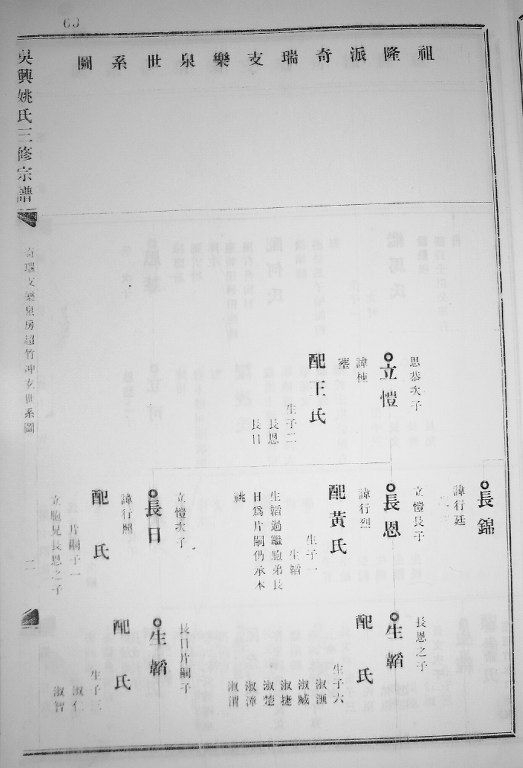 祖隆派奇瑞支樂泉世系圖
吳興姚氏三修宗譜
長錦
諱行廷
思恭次子
立愷
諱棟
配王氏
生子二
長恩
長日
立愷長子
長恩
諱行烈
配黃氏
生子一
生韜
生韜過繼胞弟長
日爲片嗣仍承本
祧
立愷次子
長日
諱行照
配 氏
片嗣子一
立胞兄長恩之子
長恩之子
生韜
配 氏
生子六
淑滙
淑臧
淑捷
淑楚
淑漳
淑渭
長日片嗣子
生韜
配 氏
生子三
淑仁
淑智
二